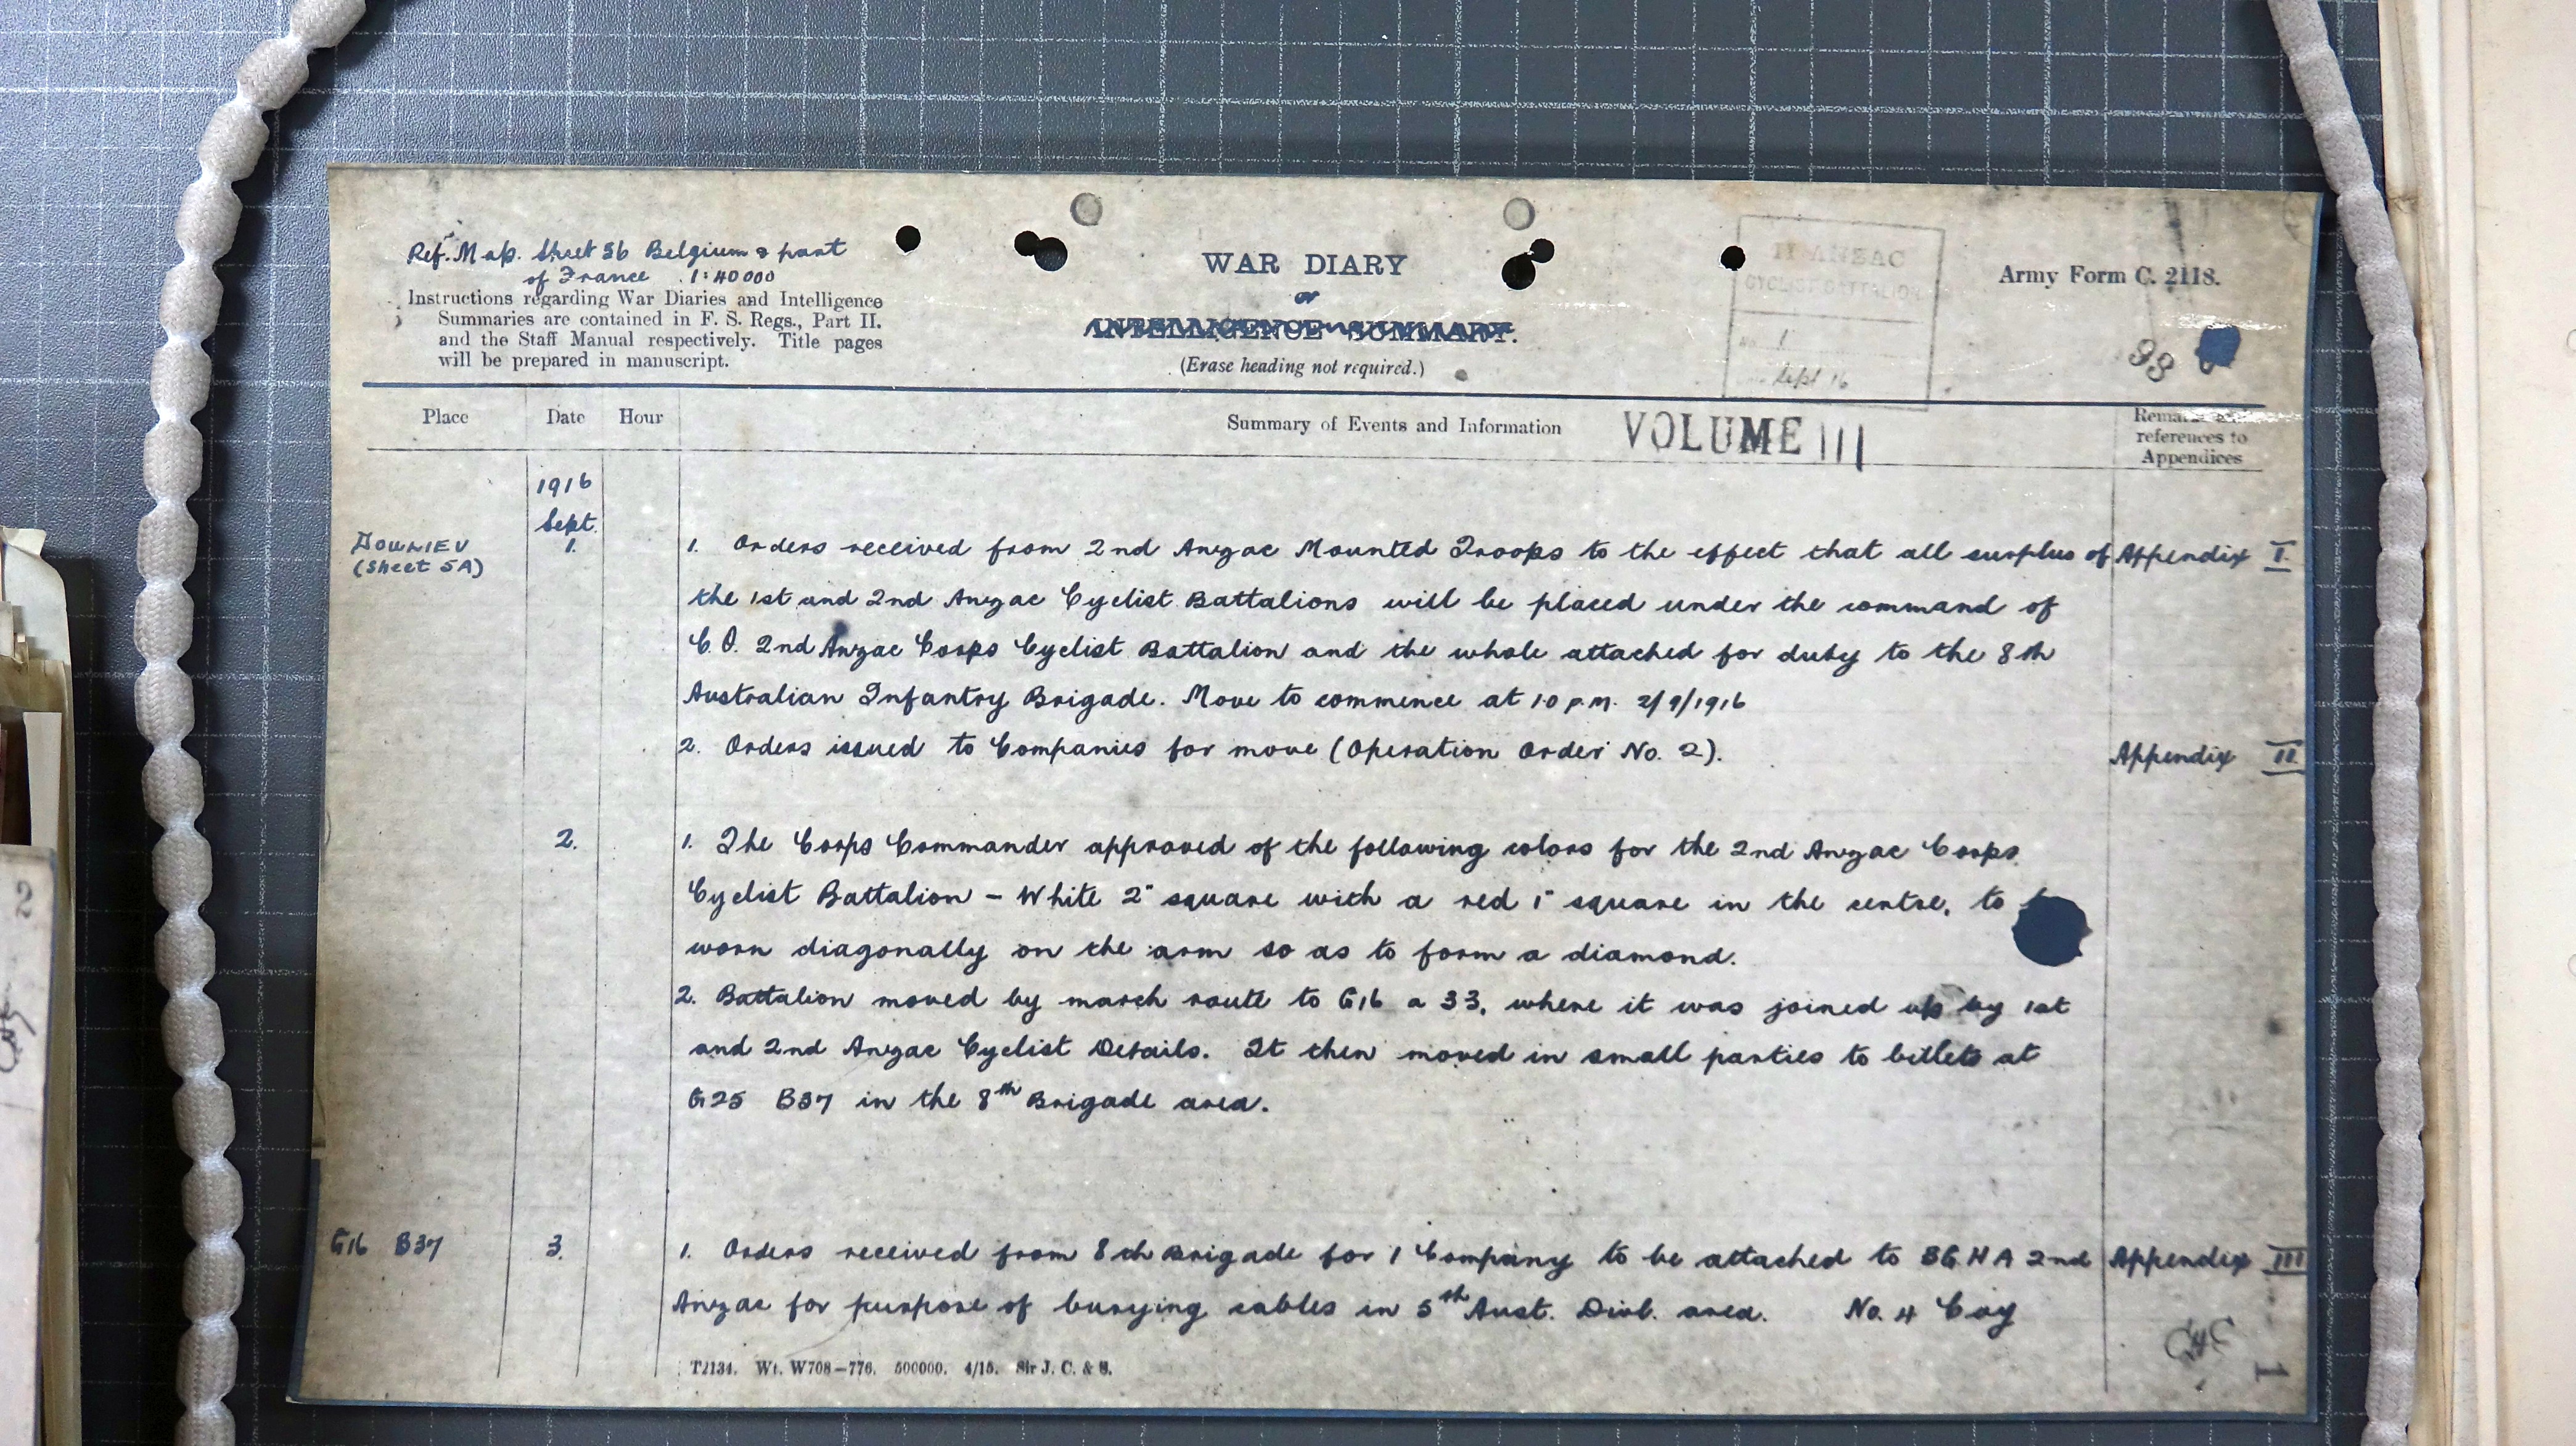 Ref. Map. Sheet 36 Belgium & part
of France 1:40000
Instructions regarding War Diaries and Intelligence
Summaries are contained in F. S. Regs., Part II.
and the Staff Manual respectively. Title pages
will be prepared in manuscript.
WAR DIARY
or
INTELLIGENCE SUMMARY.
(Erase heading not required.)
II ANZAC
CYCLIST BATTALION
No. 1
Sept 16
Army Form C. 2118.
98
Place Date Hour Summary of Events and Information VOLUME III
references to
Appendices
1916
Sept.
DOULIEU 1. 1. Orders received from 2nd Anzac Mounted Troops to the effect that all surplus of Appendix I.
(Sheet 5A)
the 1st and 2nd Anzac Cyclist Battalions will be placed under the command of
C.O. 2nd Anzac Corps Cyclist Battalion and the whole attached for duty to the 8th
Australian Infantry Brigade. Move to commence at 10 p.m. 2/9/1916
2. Orders issued to Companies for move (Operation Order No. 2). Appendix II.
2. 1. The Corps Commander approved of the following colors for the 2nd Anzac Corps
Cyclist Battalion - White 2" square with a red 1" square in the centre, to
worn diagonally on the arm so as to form a diamond.
2. Battalion moved by march route to G16 a 33, where it was joined up by 1st
and 2nd Anzac Cyclist Details. It then moved in small parties to billets at
G25 B37 in the 8th Brigade area.
G16 B37 3. 1. Orders received from 8th Brigade for 1 Company to be attached to 2nd Appendix III
Anzac for purpose of burying cables in 5th Aust. Divl. area. No. 4 Coy
T2134. Wt. W708—776. 500000. 4/15. Sir J. C. & S.
1
2